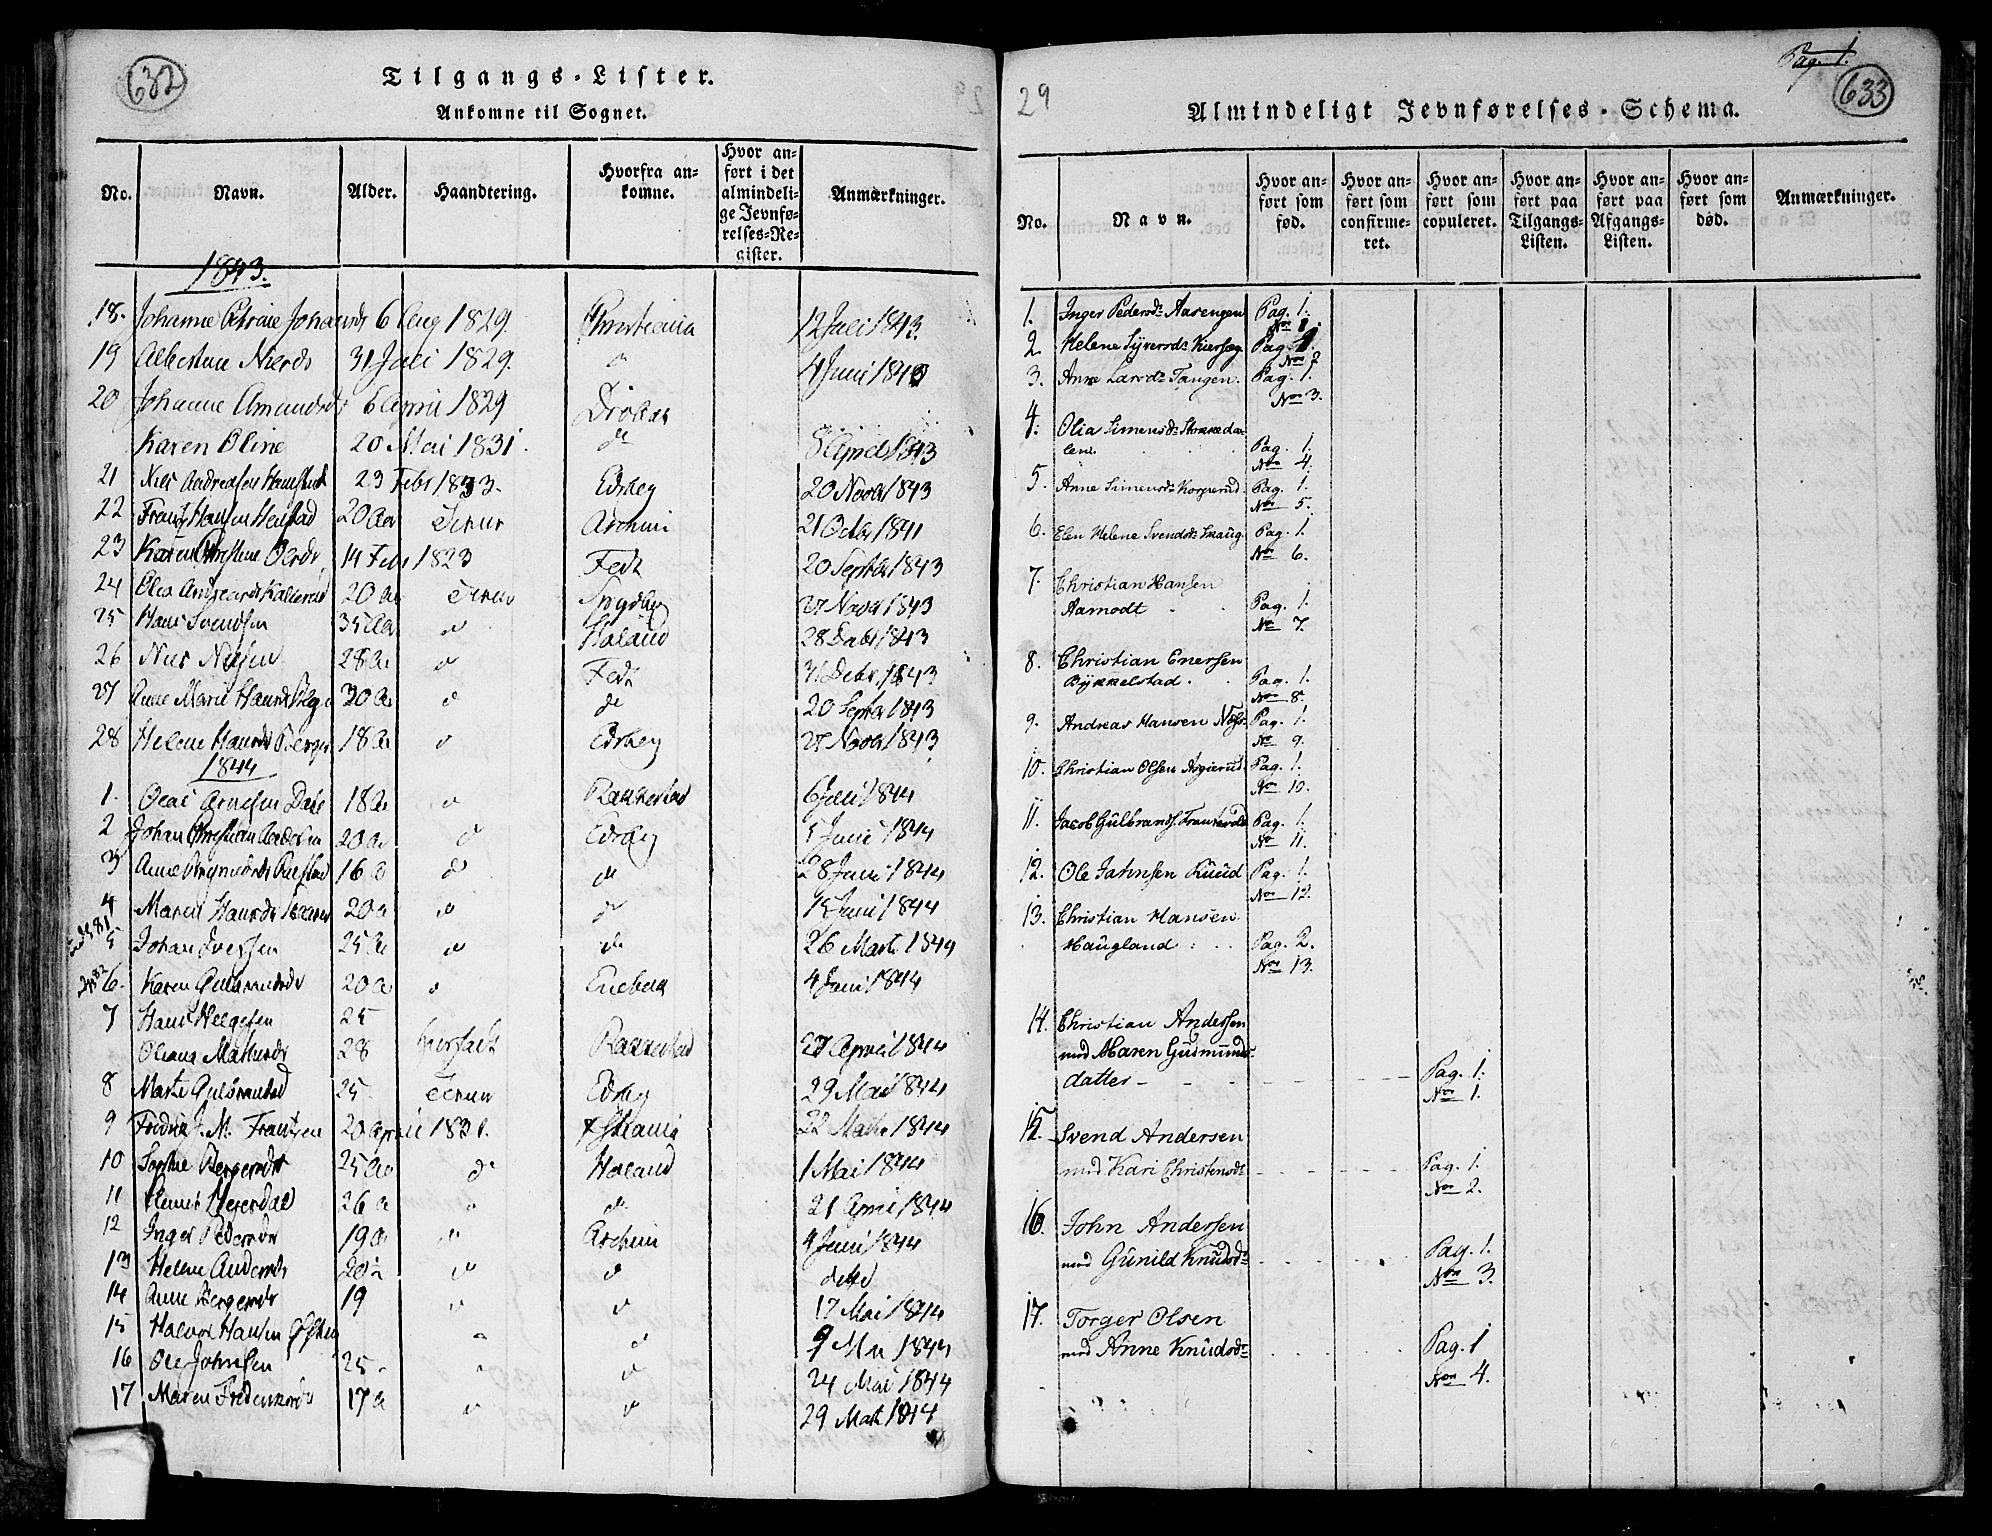 632
Tilgangs-Lister.
Ankomne til Sognet.
No. Navn. Alder. Haandtering. Hvorfra ankomne. Hvor anført i det almindelige Jevnførelses-Register. Anmærkninger.
1843.
18. Johanne 6 Aug 1829. Christiania 12 Juli 1843.
19 31 Juli 1829. " 4 Juni 1843
20 Johanne Amundsdr 6 April 1829 Drøbak
Karen Oline 20 Mai 1831. do 5 April 1843
21 Nils Andreasen 23 Febr 1833. Edsberg 20 Novbr 1843
22 Frantz Hansen 20 Aar Tienr Aschim 21 Octbr 1841
23 Karen Christine 14 Febr 1823 Fedt 20 Septbr 1843
24 20 Aar Tienr Spydbg 27 Novbr 1843
25 Hans Svendsen 35 Aar do Høland 28 Debr 1843
26 Niels Nilsen 28 Aar do Fedt Debr. 1843
27 Anne Marie Hansdr 30 Aar do do 20 Septbr 1843
28 Helene Hansdr Berger 18 Aar do Edsberg 27 Novbr 1843
1844
1. Olai Arnesen Dahl 18 Aar do Rakkestad 6 Juli 1844
2 Johan Christian 20 Aar do Edsberg 5 Juni 1844
3 Anne 16 Aar do do 28 Juni 1844
4 Maren Hansdr 20 a do do 15 Juni 1844
5 Johan Iversen 25 Aar do do 26 Marts 1844
6. Karen Gulbrandsdr 20 a do Enebak 4 Juni 1844
7 Hans Helgesen 25
Oliana Mathisdr 28 Rakkestad 27 April 1844
8 Marte Gulbrandsd 25 Tienr Edsberg 29 Mai 1844
9 Fredrik J. M. Frantzen 20 April 1831. 22 Marts 1844
10 Sophie Bergersdtr 25 Aar do Høland 1 Mai 1844
11 26 a " do 21 April 1844
12 Inger Pedersdr 19 a " Aschim 4 Juni 1844
13 Helene Andersdr 20 a do do ditto
14 Anne Bergersdr 19 do do 17 Mai 1844
15 Halvor Hansen " do 9 Mai 1844
16 Ole Johnsen 25 " do 24 Mai 1844
17 Maren Frederiksdr 17 a do do 29 Marts 1844
29
Pag. 1.
633
Almindeligt Jevnførelses-Schema.
No. Navn. Hvor anført som fød. Hvor anført som confirmeret. Hvor anført som copuleret. Hvor anført paa Tilgangs-Listen. Hvor anført paa Afgangs-Listen. Hvor anført som død. Anmærkninger.
1. Inger Pedersdr Aasengen Pag. 1.
No 1.
2. Helene Syversdr Kierseg. Pag. 1.
No 2
3. Anne Larsdr Tangen. Pag. 1.
No 3.
4. Olia Simensdr Stokkeda-
len. Pag. 1.
No 4.
5. Anne Simensdr Korperud. Pag. 1.
No 5.
6. Elen Helene Svendsdr Skaug. Pag. 1.
No 6.
7. Christian Hansen
Aamodt Pag. 1.
No 7.
8. Christian Enersen
Bykkelstad. Pag. 1.
No 8.
9. Andreas Hansen Næss. Pag. 1.
No 9.
10. Christian Olsen Pag. 1.
No 10.
11. Jacob Gulbrands. Pag. 1.
No 11.
12. Ole Jahnsen Ruud Pag. 1.
No 12.
13. Christian Hansen
Haugland Pag. 2.
No 13.
14. Christian Andersen
med Maren Gudmunds-
datter Pag. 1.
No 1.
15. Svend Andersen
med Kari Christensdr Pag. 1.
No 2.
16. John Andersen
med Gunild Knudsdr Pag. 1.
No 3.
17. Torger Olsen
med Anne Knudsdr Pag. 1
No 4.